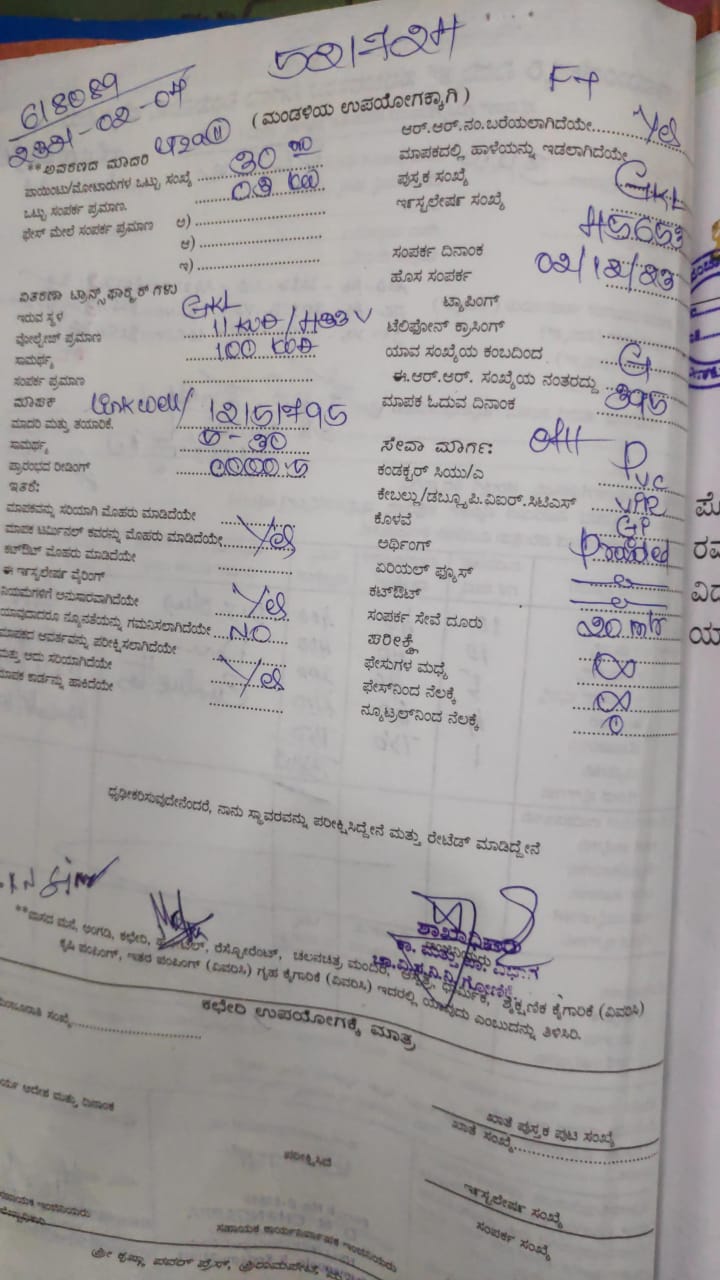 618089
521724
( ಮಂಡಳಿಯ ಉಪಯೋಗಕ್ಕಾಗಿ )
**ಆವರಣದ ಮಾದರಿ
ಪಾಯಿಂಟು/ಮೋಟಾರುಗಳ ಒಟ್ಟು ಸಂಖ್ಯೆ
ಒಟ್ಟು ಸಂಪರ್ಕ ಪ್ರಮಾಣ.
ಫೇಸ್ ಮೇಲೆ ಸಂಪರ್ಕ ಪ್ರಮಾಣ ಅ)
ಆ)
ಇ)
ವಿತರಣಾ ಟ್ರಾನ್ಸ್‌ಫಾರ್ಮರ್‌ಗಳು
ಇರುವ ಸ್ಥಳ GKL
ವೋಲ್ಟೇಜ್ ಪ್ರಮಾಣ
ಸಾಮರ್ಥ್ಯ
ಸಂಪರ್ಕ ಪ್ರಮಾಣ
ಮಾಪಕ
ಮಾದರಿ ಮತ್ತು ತಯಾರಿಕೆ. Linkwell/ 12151795
ಸಾಮರ್ಥ್ಯ 5-30
ಪ್ರಾರಂಭದ ರೀಡಿಂಗ್ 0000.5
ಇತರೆ:
ಮಾಪಕವನ್ನು ಸರಿಯಾಗಿ ಮೊಹರು ಮಾಡಿದೆಯೇ
ಮಾಪಕ ಟರ್ಮಿನಲ್ ಕವರನ್ನು ಮೊಹರು ಮಾಡಿದೆಯೇ Yes
ಕಟ್‌ಔಟ್ ಮೊಹರು ಮಾಡಿದೆಯೇ
ಈ ಇನ್ಸ್ಟಲೇಷನ್ ವೈರಿಂಗ್
ನಿಯಮಗಳಿಗೆ ಅನುಸಾರವಾಗಿದೆಯೇ Yes
ಯಾವುದಾದರೂ ನ್ಯೂನತೆಯನ್ನು ಗಮನಿಸಲಾಗಿದೆಯೇ NO
ಮಾಪಕದ ಆವರ್ತವನ್ನು ಪರೀಕ್ಷಿಸಲಾಗಿದೆಯೇ
ಮತ್ತು ಅದು ಸರಿಯಾಗಿದೆಯೇ Yes
ಮಾಪಕ ಕಾರ್ಡನ್ನು ಹಾಕಿದೆಯೇ
ಆರ್.ಆರ್.ನಂ.ಬರೆಯಲಾಗಿದೆಯೇ Yes
ಮಾಪಕದಲ್ಲಿ ಹಾಳೆಯನ್ನು ಇಡಲಾಗಿದೆಯೇ
ಪುಸ್ತಕ ಸಂಖ್ಯೆ GKL
ಇನ್ಸ್ಟಲೇಷನ್ ಸಂಖ್ಯೆ 45653
ಸಂಪರ್ಕ ದಿನಾಂಕ 02/12/23
ಹೊಸ ಸಂಪರ್ಕ
ಟ್ಯಾಪಿಂಗ್
ಟೆಲಿಫೋನ್ ಕ್ರಾಸಿಂಗ್
ಯಾವ ಸಂಖ್ಯೆಯ ಕಂಬದಿಂದ
ಈ.ಆರ್.ಆರ್. ಸಂಖ್ಯೆಯ ನಂತರದ್ದು 395
ಮಾಪಕ ಓದುವ ದಿನಾಂಕ
ಸೇವಾ ಮಾರ್ಗ: OH
ಕಂಡಕ್ಟರ್ ಸಿಯು/ಎ PVC
ಕೇಬಲ್ಲು/ಡಬ್ಲ್ಯೂ.ಪಿ.ವಿಐಆರ್.ಸಿಟಿಎಸ್
ಕೊಳವೆ GP
ಅರ್ಥಿಂಗ್ Provided
ಏರಿಯಲ್ ಫ್ಯೂಸ್
ಕಟ್‌ಔಟ್
ಸಂಪರ್ಕ ಸೇವೆ ದೂರು 20 mtr
ಪರೀಕ್ಷೆ
ಫೇಸುಗಳ ಮಧ್ಯೆ ∞
ಫೇಸ್‌ನಿಂದ ನೆಲಕ್ಕೆ ∞
ನ್ಯೂಟ್ರಲ್‌ನಿಂದ ನೆಲಕ್ಕೆ
ಧೃಢೀಕರಿಸುವುದೇನೆಂದರೆ, ನಾನು ಸ್ಥಾವರವನ್ನು ಪರೀಕ್ಷಿಸಿದ್ದೇನೆ ಮತ್ತು ರೇಟೆಡ್ ಮಾಡಿದ್ದೇನೆ
ಶಾಖಾಧಿಕಾರಿ
**ವಾಸದ ಮನೆ, ಅಂಗಡಿ, ಕಛೇರಿ, ಹೋಟೆಲ್, ರೆಸ್ಟೋರೆಂಟ್, ಚಲನಚಿತ್ರ ಮಂದಿರ, ಆಸ್ಪತ್ರೆ, ಧಾರ್ಮಿಕ, ಶೈಕ್ಷಣಿಕ ಕೈಗಾರಿಕೆ (ವಿವರಿಸಿ)
ಕೃಷಿ ಪಂಪಿಂಗ್, ಇತರ ಪಂಪಿಂಗ್ (ವಿವರಿಸಿ) ಗೃಹ ಕೈಗಾರಿಕೆ (ವಿವರಿಸಿ) ಇದರಲ್ಲಿ ಯಾವುದು ಎಂಬುದನ್ನು ತಿಳಿಸಿರಿ.
ಕಛೇರಿ ಉಪಯೋಗಕ್ಕೆ ಮಾತ್ರ
ಖಾತೆ ಪುಸ್ತಕ ಪುಟ ಸಂಖ್ಯೆ
ಖಾತೆ ಸಂಖ್ಯೆ
ಆದೇಶ ಮತ್ತು ದಿನಾಂಕ
ಪರೀಕ್ಷಿಸಿದೆ
ಇನ್ಸ್ಟಲೇಷನ್ ಸಂಖ್ಯೆ
ಸಂಪರ್ಕ ಸಂಖ್ಯೆ
ಸಹಾಯಕ ಇಂಜಿನಿಯರು
ಸಹಾಯಕ ಕಾರ್ಯನಿರ್ವಾಹಕ ಇಂಜಿನಿಯರು
ಶ್ರೀ ಕೃಷ್ಣಾ ಪವರ್ ಪ್ರೆಸ್,